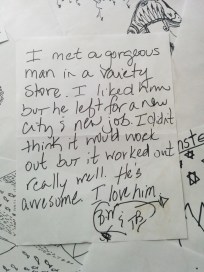 I met a gorgeous
man in a Vaiety
Store. I liked him
but he left for a new
city & new job. I didnt
think it would work
out but it worked out
really well. He's
awesome. I love him